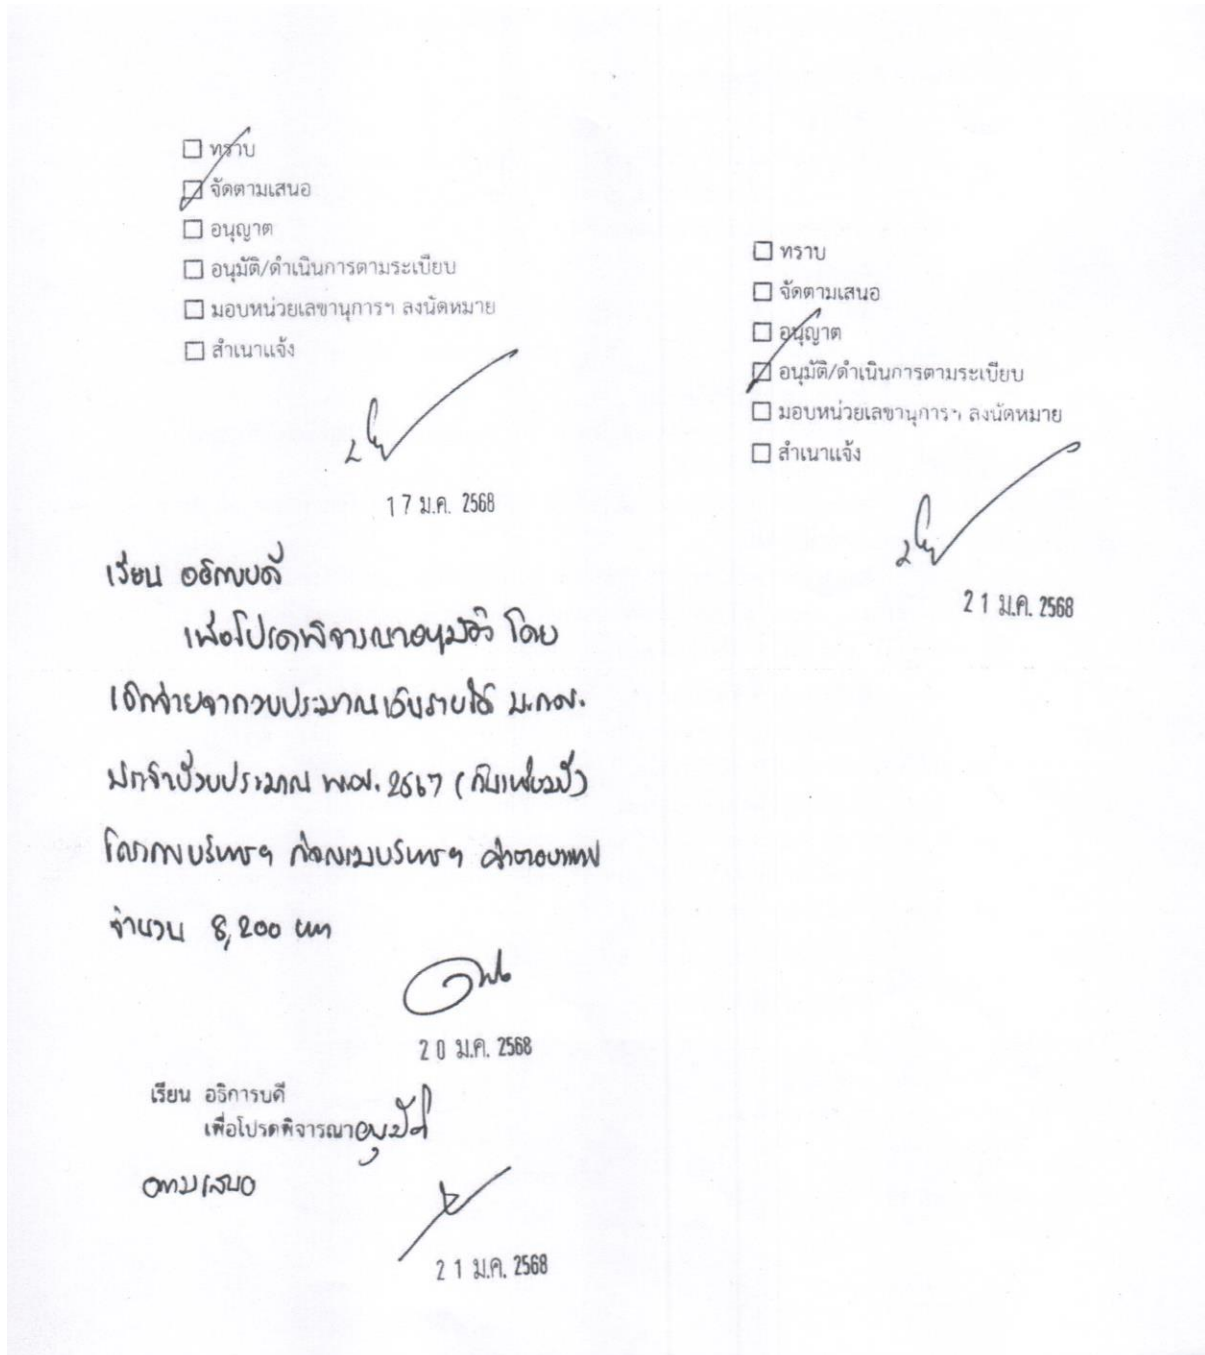 ☐ ทราบ
☑ จัดตามเสนอ
☐ อนุญาต
☐ อนุมัติ/ดำเนินการตามระเบียบ
☐ มอบหน่วยเลขานุการฯ ลงนัดหมาย
☐ สำเนาแจ้ง
17 ม.ค. 2568
เรียน อธิการบดี
เพื่อโปรดพิจารณาอนุมัติ โดย
เบิกจ่ายจากงบประมาณเงินรายได้
ประจำปีงบประมาณ พ.ศ. 2567 (กันเหลื่อมปี)
โครงการบริหารฯ กิจกรรมบริหารฯ ค่าตอบแทน
จำนวน 8,200 บาท
20 ม.ค. 2568
เรียน อธิการบดี
เพื่อโปรดพิจารณาอนุมัติ
ตามเสนอ
21 ม.ค. 2568
☐ ทราบ
☐ จัดตามเสนอ
☐ อนุญาต
☑ อนุมัติ/ดำเนินการตามระเบียบ
☐ มอบหน่วยเลขานุการฯ ลงนัดหมาย
☐ สำเนาแจ้ง
21 ม.ค. 2568